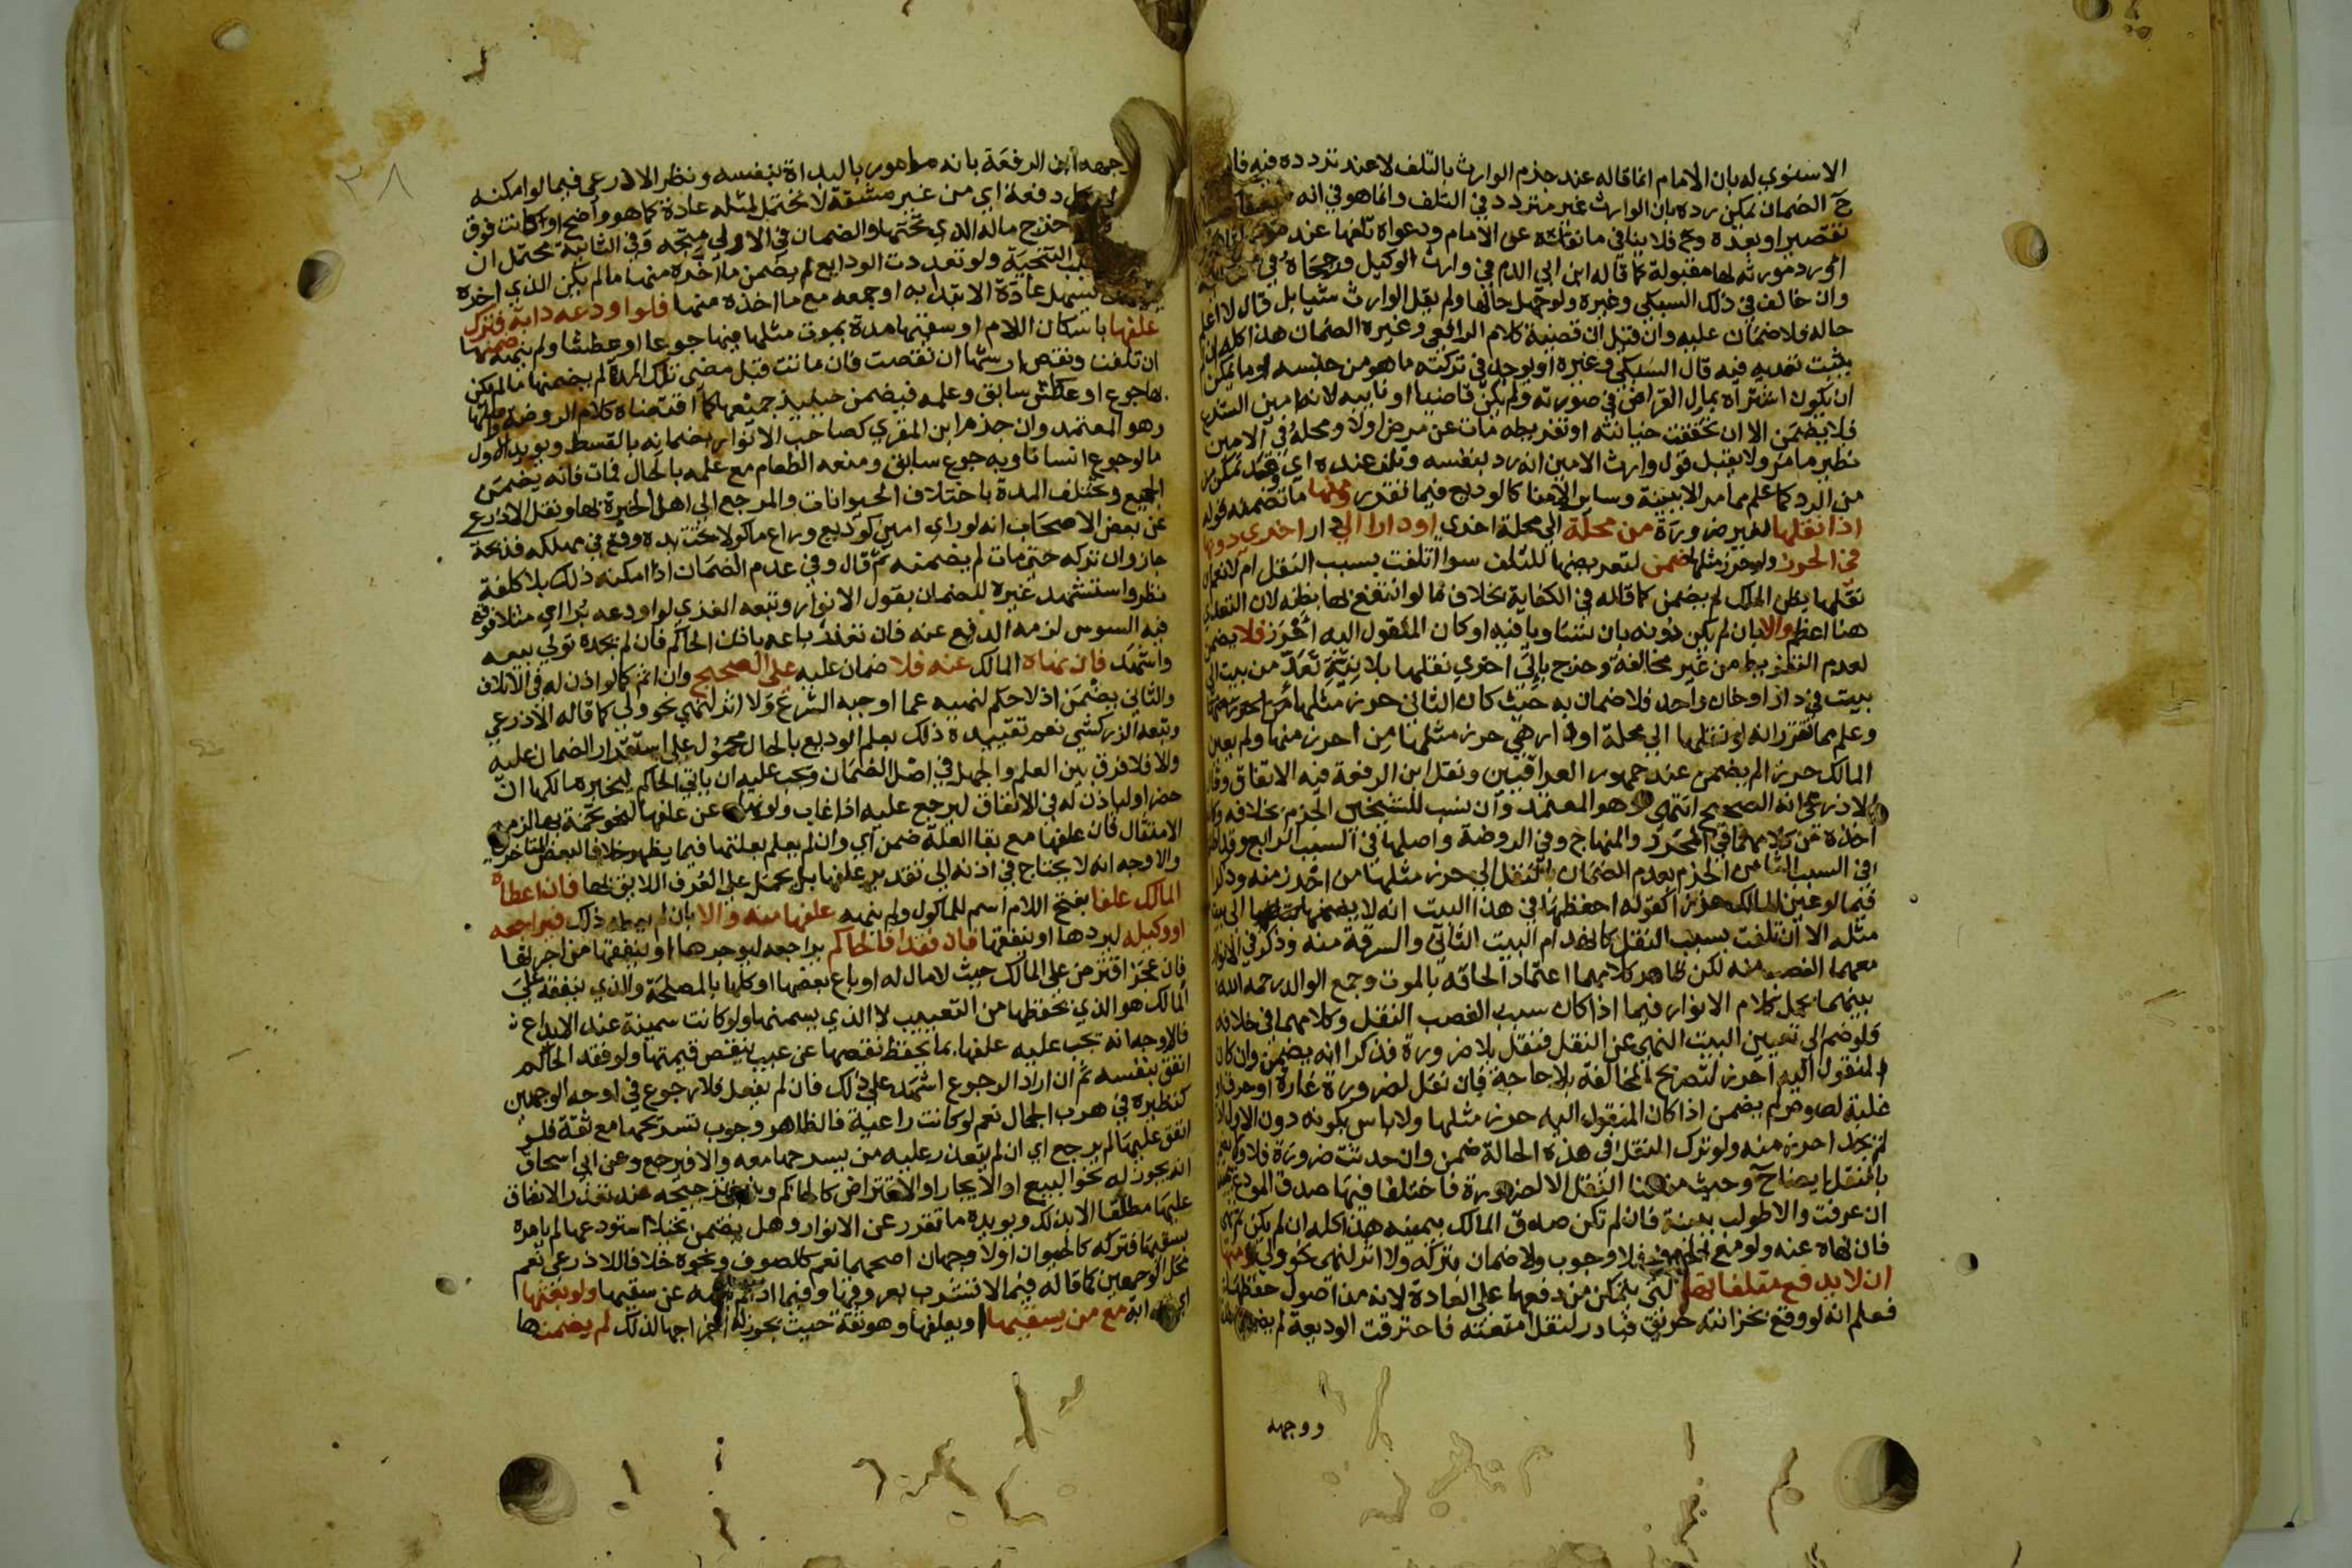 الاسنوي له بان الامام انما قاله عند جزم الوارث بالتلف لا عند تردده فيه فان
ح الضمان يمكن رده بان الوارث غير متردد في التلف وانما هو في انه
تقصير او بعده وح فلا ينافي ما نقلته عن الامام ودعواه تلفها عند
المورد مورثه لها مقبولة كما قاله ابن ابي الدم في وارث الوكيل ورجحاه في
وان خالف في ذلك السبكي وغيره ولو جهل حالها ولم يقل الوارث شيا بل قال لا اعلم
حاله فلا ضمان عليه وان قيل ان قضية كلام الرافعي وغيره الضمان هذا كله ان لم
يثبت تعديه فيه قال السبكي وغيره او يوجد في تركته ما هو من جنسه او ما يمكن
ان يكون اشتراه بمال القراض في صورته ولم يكن قاضيا او نايبه لانه امين الشرع
فلا يضمن الا ان تحققت خيانته او تفريطه مات عن مرض او لا ومحله في الامين
نظير ما مر ولا يقبل قول وارث الامين انه رد بنفسه وتلف عنده اي وقد تمكن من
من الرد كما علم مما مر الا ببينة وساير الامنا كالوديع فيما تقدر ومنها ما تضمنه قوله
اذا نقلها لغير ضرورة من محلة الي محلة اخري او دار الي دار اخري دونها
في الحرز ولو حرز مثلها ضمن لتعريضها للتلف سوا اتلفت بسبب النقل ام لا نعم ان
نقلها بظن الملك لم يضمن كما قاله في الكفاية بخلاف ما لو انتفع بها بظنه لان التعدي
هنا اعظم والا بان لم يكن دونه بان تساويا فيه او كان المنقول اليه احرز فلا يضمن
لعدم التفريط من غير مخالفة وخرج بالي اخري نقلها بلا نية تعد من بيت الي
بيت في دار او خان واحد فلا ضمان به حيث كان الثاني حرز مثلها
وعلم مما تقرر انه لو نقلها الي محلة او دار هي حرز مثلها من احرز منها ولم يعين
المالك حرزا لم يضمن عند جمهور العراقيين ونقل ابن الرفعة فيه الاتفاق وقال
الاذرعي انه الصحيح انتهى وهو المعتمد وان نسب للشيخين الجزم بخلافه
اخذه من كلامهما في المحرر والمنهاج وفي الروضة واصلها في السبب الرابع وقد
في السبب الثامن الجزم بعدم الضمان بالنقل الي حرز مثلها من احرز منه وذكرا
فيما لو عين المالك حرزا كقوله احفظها في هذا البيت انه لا يضمنها
مثله الا ان تلفت بسبب النقل كانهدام البيت الثاني والسرقة منه وذكر في الانوار
معهما الغصب منه لكن ظاهر كلامهما اعتماد الحاقه بالموت وجمع الوالد رحمه الله
بينهما بحمل كلام الانوار فيما اذا كان سبب الغصب النقل وكلامهما في خلافه
فلو ضم الى تعيين البيت النهي عن النقل فنقل بلا ضرورة فذكرا انه يضمن وان كان
المنقول اليه احرز لتصريح المخالفة بلا حاجة فان نقل لضرورة غارة او حرق او
غلبة لصوص لم يضمن اذا كان المنقول اليه حرز مثلها ولا باس بكونه دون الاول اذا
لم يجد احرز منه ولو ترك النقل في هذه الحالة ضمن وان حدثت ضرورة فلا
بالنقل ايضاح وحيث منعنا النقل الا لضرورة فاختلفا فيها صدق المودع بيمينه
ان عرفت والا طولب ببينة فان لم تكن صدق المالك بيمينه هذا كله ان لم يكن
فان نهاه عنه ولو مع الخوف فلا وجوب ولا ضمان بتركه ولا اثر لنهي نحو ولي ومنها
ان لا يدفع متلفاتها التي يتمكن من دفعها علي العادة لانه من اصول حفظها
فعلم انه لو وقع بخزانته حريق فبادر لنقل امتعته فاحترقت الوديعة لم يضمنها
ووجهه
وجهه ابن الرفعة بانه مامور بالبداة بنفسه ونظر الاذرعي فيما لو امكنه
دفعة اي من غير مشقة لا تحتمل لمثله عادة كما هو واضح او كانت فوق
اخرج ماله الذي تحتها والضمان في الاولي متجه وفي الثانية محتمل ان
التنحية ولو تعددت الودايع لم يضمن ما اخره منها ما لم يكن الذي اخره
يسهل عادة الابتدا به او جمعه مع ما اخذه منها فلو اودعه دابة فترك
علفها باسكان اللام او سقيها مدة يموت مثلها فيها جوعا او عطشا ولم ينهه ضمنها
ان تلفت ونقص ارشها ان نقصت فان ماتت قبل مضي تلك المدة لم يضمنها ما لم يكن
بها جوع او عطش سابق وعلمه فيضمن حينيذ جميعها كما اقتضاه كلام الروضة واصلها
وهو المعتمد وان جزم ابن المقري كصاحب الانوار بضمانه بالقسط ويويد الاول
ما لو جوع انسانا وبه جوع سابق ومنعه الطعام مع علمه بالحال فمات فانه يضمن
الجميع وتختلف المدة باختلاف الحيوانات والمرجع الي اهل الخبرة بها ونقل الاذرعي
عن بعض الاصحاب انه لو راي امين كوديع وراع ماكولا تحت يده وقع في مهلكه فذبحه
جاز وان تركه حتي مات لم يضمنه ثم قال وفي عدم الضمان اذا امكنه ذلك بلا كلفة
نظر واستشهد غيره للضمان بقول الانوار وتبعه الغزي لو اودعه برا اي مثلا فوقع
فيه السوس لزمه الدفع عنه فان تعذر باعه باذن الحاكم فان لم يجده تولي بيعه
واشهد فان نهاه المالك عنه فلا ضمان عليه علي الصحيح وان اثم كما لو اذن له في الاتلاف
والثاني يضمن اذ لا حكم لنهيه عما اوجبه الشرع ولا اثر لنهي نحو ولي كما قاله الاذرعي
وتبعه الزركشي نعم تقييده ذلك بعلم الوديع بالحال محمول علي استقرار الضمان عليه
والا فلا فرق بين العلم والجهل في اصل الضمان ويجب عليه ان ياتي الحاكم ليخبر مالكها ان
حضر او لياذن له في الانفاق ليرجع عليه اذا غاب ولو نهاه عن علفها لنحو تخمة بها لزمه
الامتثال فان علفها مع بقا العلة ضمن اي وان لم يعلم بعلتها فيما يظهر خلافا لبعض المتاخرين
والاوجه انه لا يحتاج في اذنه الي تقدير علفها بل يحمل علي العرف اللايق بها فان اعطاه
المالك علفا بفتح اللام اسم للماكول ولم ينهه علفها منه والا بان لم يعطه ذلك فيراجعه
او وكيله ليردها او ينفقها فان فقدا فالحاكم يراجعه ليوجرها او ينفقها من اجرتها
فان عجز اقترض علي المالك حيث لا مال له او باع بعضها او كلها بالمصلحة والذي ينفقه علي
المالك هو الذي يحفظها من التعييب لا الذي يسمنها ولو كانت سمينة عند الايداع
فالاوجه انه يجب عليه علفها بما يحفظ نقصها عن عيب ينقص قيمتها ولو فقد الحاكم
انفق بنفسه ثم ان اراد الرجوع اشهد علي ذلك فان لم يفعل فلا رجوع في اوجه الوجهين
كنظيره في هرب الجمال نعم لو كانت راعية فالظاهر وجوب تسريحها مع ثقة فلو
انفق عليها لم يرجع اي ان لم يتعذر عليه من يسرحها معه والا فيرجع وعن ابي اسحاق
انه يجوز له نحو البيع او الايجار او الاقتراض كالحاكم وينبغي ترجيحه عند تعذر الانفاق
عليها مطلقا الا بذلك ويويده ما تقرر عن الانوار وهل يضمن نخلا استودعها لم يامره
بسقيها فتركه كالحيوان اولا وجهان اصحهما نعم كالصوف ونحوه خلافا للاذرعي نعم
محل الوجهين كما قاله فيما لا تشرب بعروقها وفيما اذا لم ينهه عن سقيها ولو بعثها
اي الدابة مع من يسقيها او يعلفها وهو ثقة حيث يجوز له اخراجها لذلك لم يضمنها